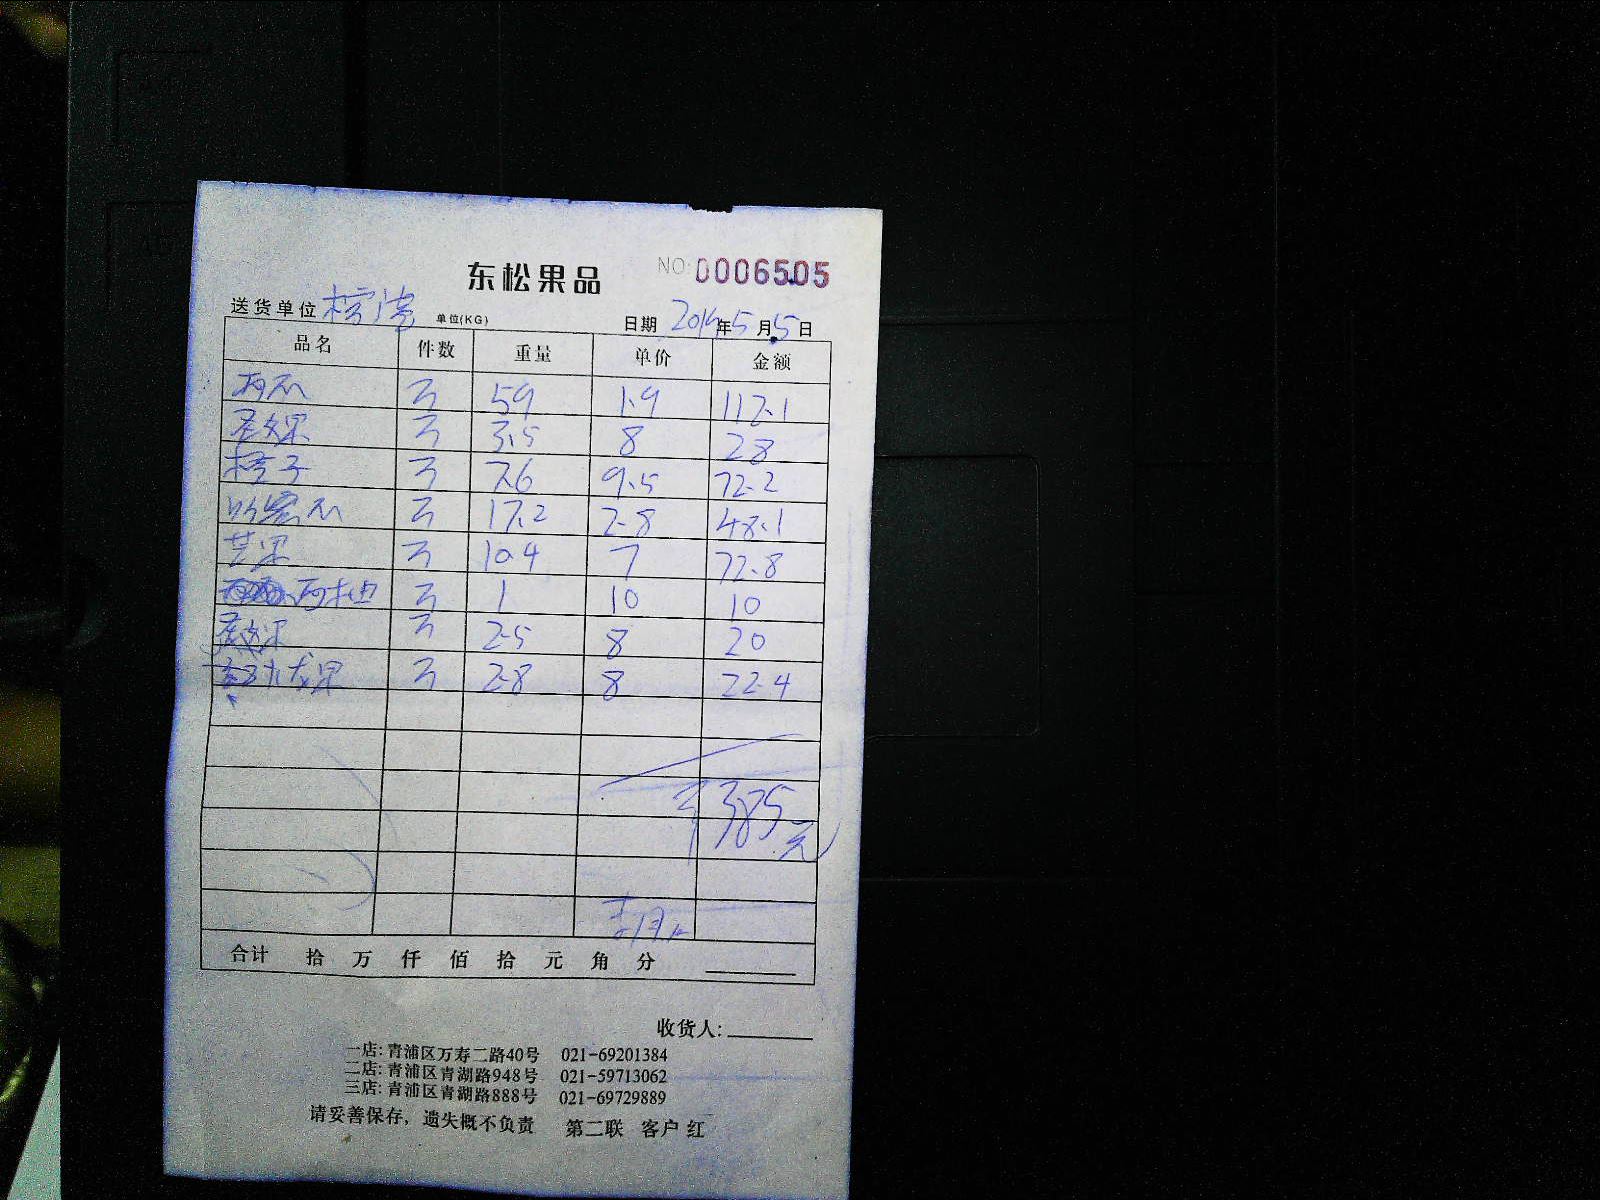 东松果品
NO:0006505
送货单位 单位(KG) 日期 年5月5日
品名 件数 重量 单价 金额
59 1.9 112.1
圣女果 3.5 8 28
橙子 7.6 9.5 72.2
17.2 2.8 48.1
芒果 10.4 7 72.8
西柚 1 10 10
2.5 8 20
火龙果 2.8 8 22.4
385元
合计 拾 万 仟 佰 拾 元 角 分
收货人:
一店: 青浦区万寿二路40号 021-69201384
二店: 青浦区青湖路948号 021-59713062
三店: 青浦区青湖路888号 021-69729889
请妥善保存，遗失概不负责 第二联 客户 红